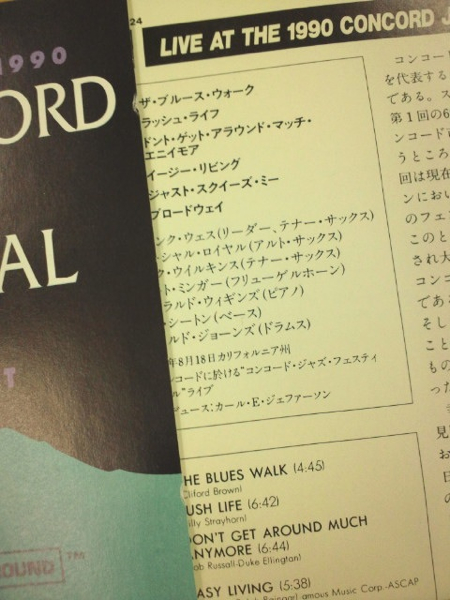 1990
CORD
AL
T
ROUND™
24
LIVE AT THE 1990 CONCORD J
ザ・ブルース・ウォーク
ラッシュ・ライフ
ドント・ゲット・アラウンド・マッチ・
エニイモア
イージー・リビング
ジャスト・スクイーズ・ミー
ブロードウェイ
ンク・ウェス(リーダー、テナー・サックス)
シャル・ロイヤル(アルト・サックス)
ク・ウイルキンス(テナー・サックス)
ト・ミンガー(フリューゲルホーン)
ラルド・ウィギンズ(ピアノ)
ー・シートン(ベース)
ルド・ジョーンズ(ドラムス)
年8月18日カリフォルニア州
ンコードに於ける"コンコード・ジャズ・フェスティ
ル"ライブ
デュース:カール・E・ジェファーソン
HE BLUES WALK (4:45)
Cliford Brown)
USH LIFE (6:42)
illy Strayhorn)
DON'T GET AROUND MUCH
ANYMORE (6:44)
ob Russall-Duke Ellington)
ASY LIVING (5:38)
amous Music Corp.-ASCAP
コンコー
を代表する
である。ス
第1回の6
ンコード
うところ
回は現在
ンにおい
のフェン
このと
され大
コンコ
である
そし
こと
もの
った
見
お
日
の